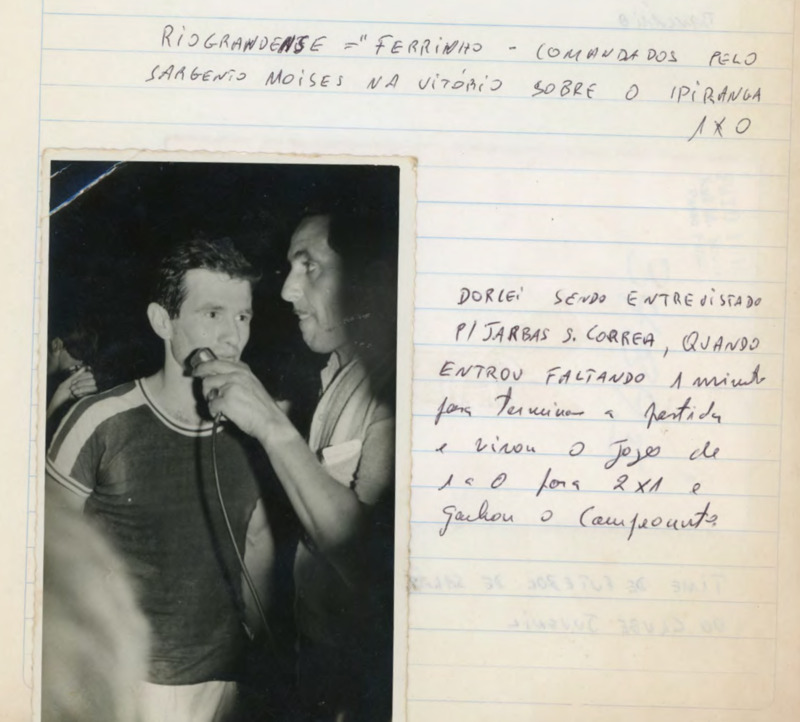 RIOGRANDENSE = "FERRINHO - COMANDADOS PELO
SARGENTO MOISES NA VITÓRIO SOBRE O IPIRANGA
1 X 0
DORLEI SENDO ENTREVISTADO
P/ JARBAS S. CORREA, QUANDO
ENTROU FALTANDO 1 minuto
para terminar a partida
e virou o Jogo de
1 a 0 para 2x1 e
ganhou o Campeonato